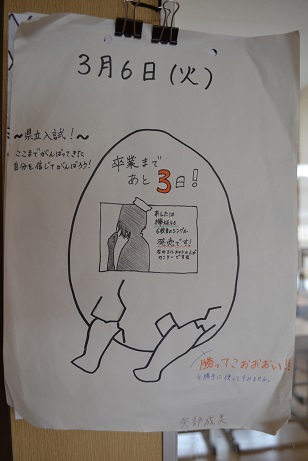 3月6日(火)
〜県立入試!〜
ここまでがんばってきた
自分を信じてがんばろう!
卒業まで
あと3日!
あしたは
欅坂46
6枚目のシングル
発売です!
センターです
勝ってこおおおい!!
矢部成美